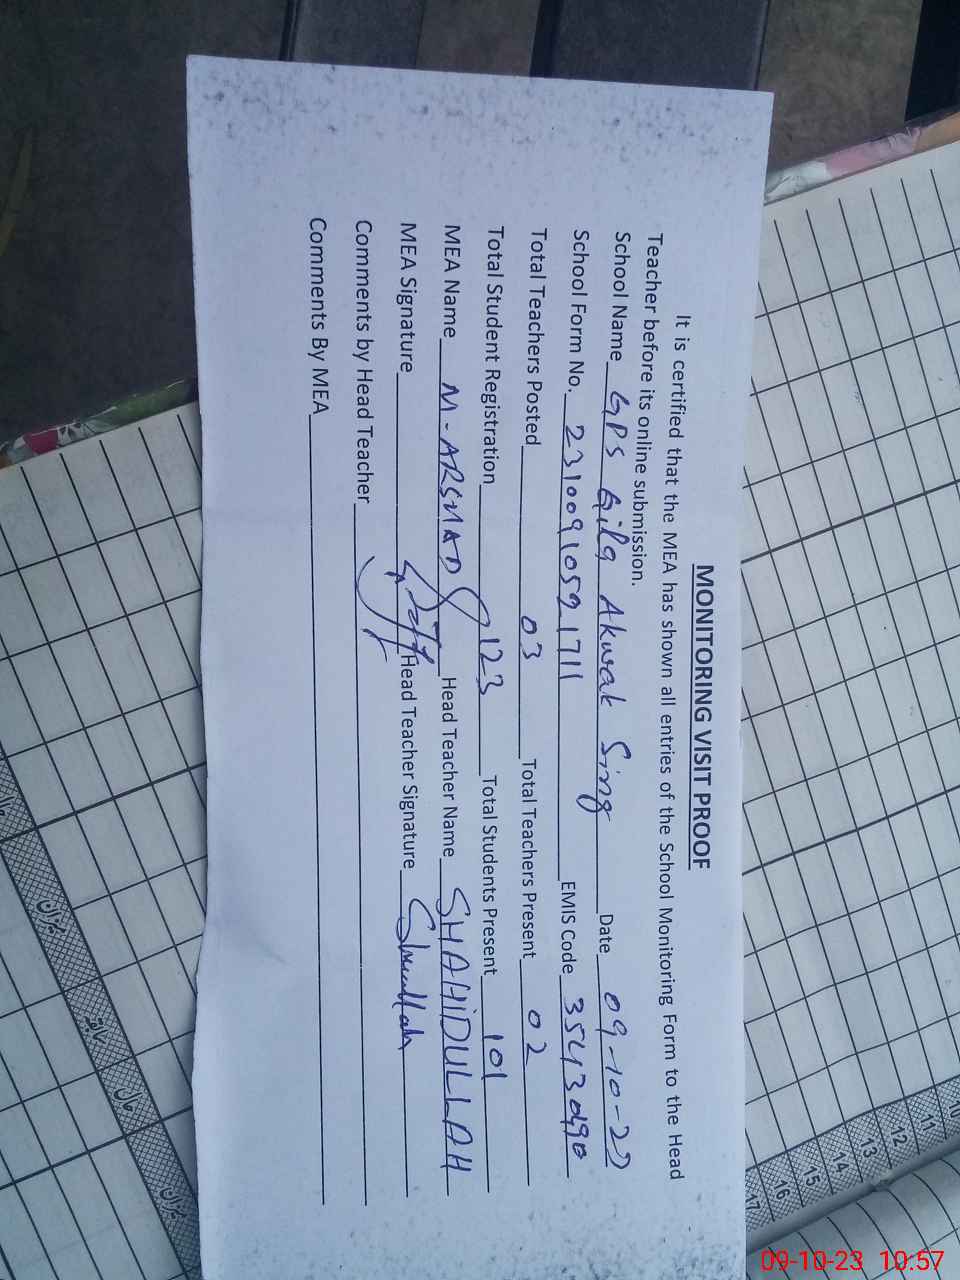 MONITORING VISIT PROOF
It is certified that the MEA has shown all entries of the School Monitoring Form to the Head
Teacher before its online submission.
School Name GPS Gila Akwak Sing Date 09-10-23
School Form No. 231009105921711 EMIS Code 35430490
Total Teachers Posted 03 Total Teachers Present 02
Total Student Registration 123 Total Students Present 101
MEA Name M-ARSHAD Head Teacher Name SHAHIDULLAH
MEA Signature Head Teacher Signature
Comments by Head Teacher
Comments By MEA
10
11
12
13
14
15
16
17
میزان
سابقہ
حال
میزان
09-10-23 10:57